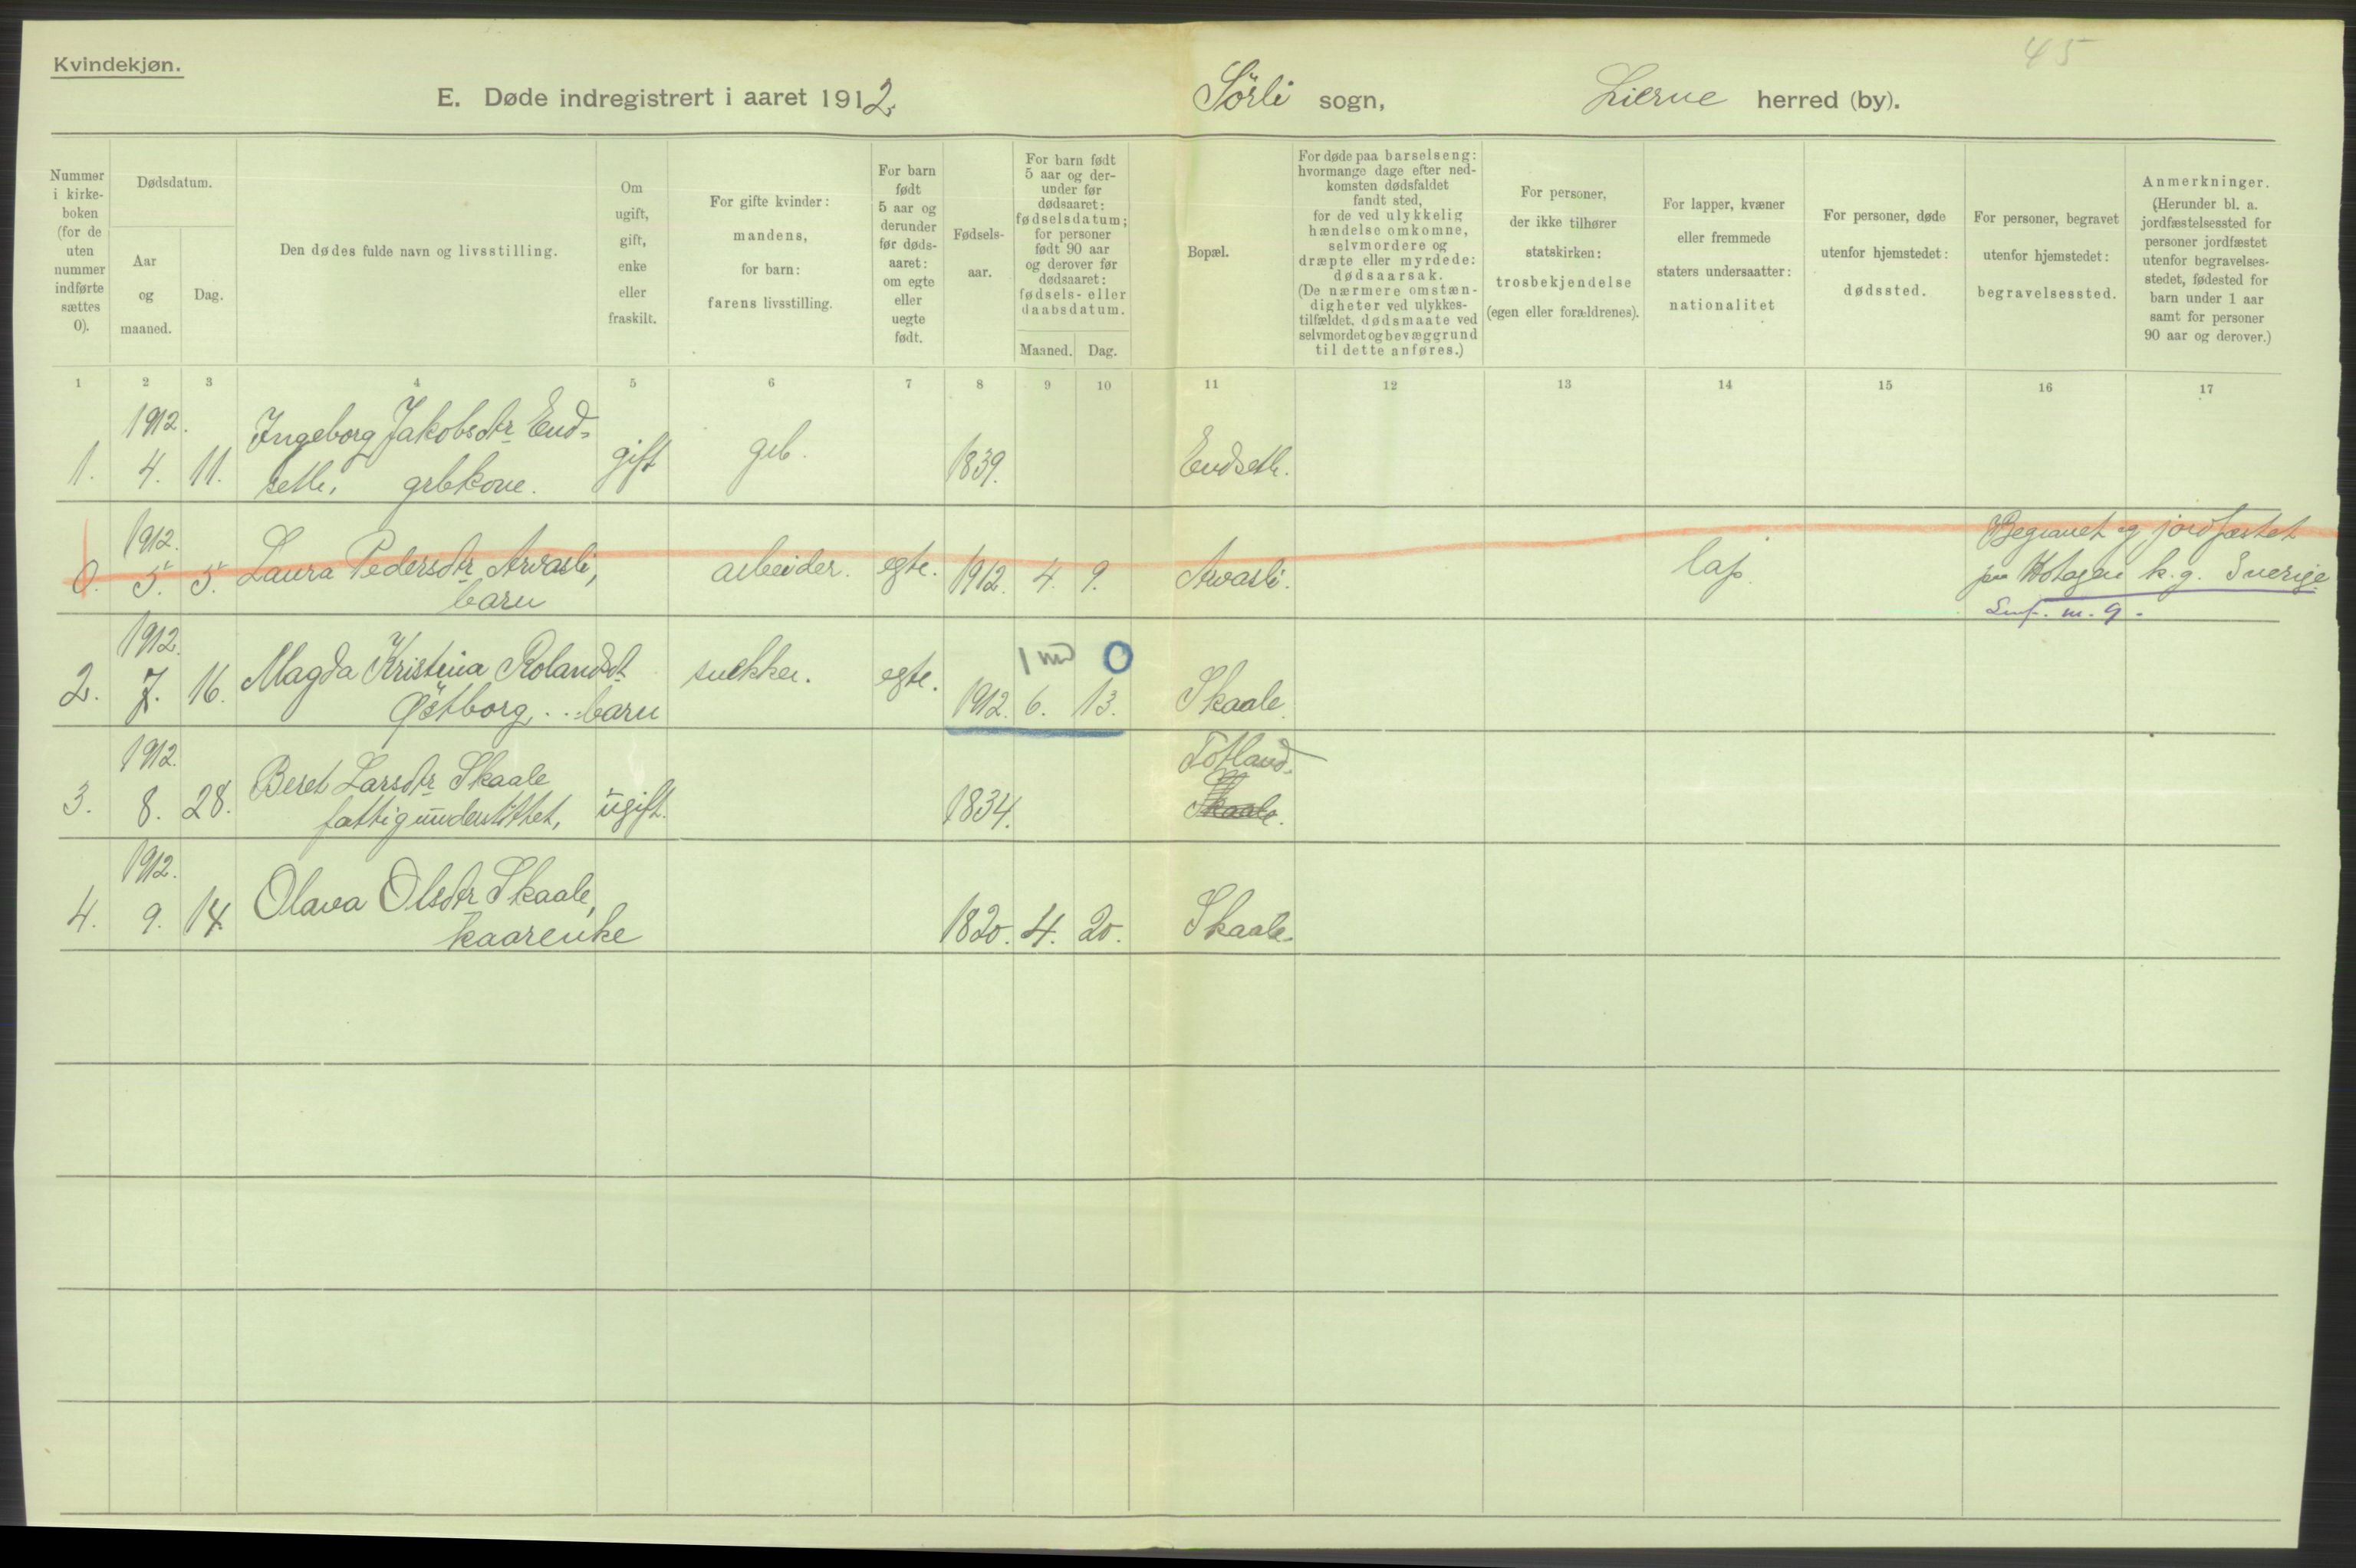 45
Kvindekjøn.
E. Døde indregistrert i aaret 1912. Sörli sogn, Lierne herred (by).
Nummer i kirke-boken (for de uten nummer indførte sættes 0).
Dødsdatum.
Aar og maaned.
Dag.
Den dødes fulde navn og livsstilling.
Om ugift, gift, enke eller fraskilt.
For gifte kvinder: mandens, for barn: farens livsstilling.
For barn født 5 aar og derunder før døds-aaret: om egte eller uegte født.
Fødsels-aar.
For barn født 5 aar og der-under før dødsaaret: fødselsdatum; for personer født 90 aar og derover før dødsaaret: fødsels- eller daabsdatum.
Maaned. Dag.
Bopæl.
For døde paa barselseng: hvormange dage efter ned-komsten dødsfaldet fandt sted, for de ved ulykkelig hændelse omkomne, selvmordere og dræpte eller myrdede: dødsaarsak. (De nærmere omstæn-digheter ved ulykkes-tilfældet, dødsmaate ved selvmordet og bevæggrund til dette anføres.)
For personer, der ikke tilhører statskirken: trosbekjendelse (egen eller forældrenes).
For lapper, kvæner eller fremmede staters undersaatter: nationalitet
For personer, døde utenfor hjemstedet: dødssted.
For personer, begravet utenfor hjemstedet: begravelsessted.
Anmerkninger. (Herunder bl. a. jordfæstelsessted for personer jordfæstet utenfor begravelses-stedet, fødested for barn under 1 aar samt for personer 90 aar og derover.)
1 2 3 4 5 6 7 8 9 10 11 12 13 14 15 16 17
1912.
Ingeborg Jakobsdtr End-
1. 4. 11. seth, grbkone. gift grb. 1839. Endseth.
1912. Begravet og jordfæstet
0. 5. 5. Laura Pedersdtr Arvasli, arbeider. egte. 1912. 4. 9. Arvasli. lap. paa Hotagen k.g. Sverige.
barn
1912. 1 md 0
2. 7. 16. Magda Kristina Rolandsdt snekker. egte.
Östborg, barn 1912. 6. 13. Skaale.
1912. Totland.
Beret Larsdtr Skaale
3. 8. 28. fattigunderstöttet, ugift. 1834. Skaale.
1912.
Olava Olsdtr Skaale,
4. 9. 14. kaarenke 1820. 4. 20. Skaale.